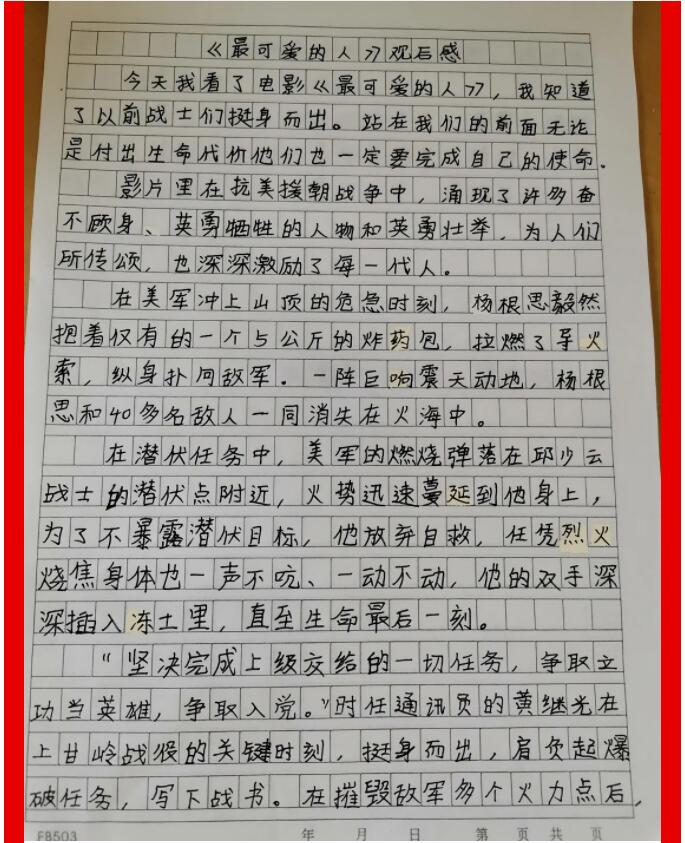 《最可爱的人》观后感
今天我看了电影《最可爱的人》，我知道
了以前战士们挺身而出。站在我们的前面无论
是付出生命代价他们也一定要完成自己的使命.
影片里在抗美援朝战争中，涌现了许多奋
不顾身、英勇牺牲的人物和英勇壮举，为人们
所传颂，也深深激励了每一代人。
在美军冲上山顶的危急时刻，杨根思毅然
抱着仅有的一个5公斤的炸药包，拉燃了导火
索，纵身扑向敌军．一阵巨响震天动地，杨根
思和40多名敌人一同消失在火海中。
在潜伏任务中，美军的燃烧弹落在邱少云
战士的潜伏点附近，火势迅速蔓延到他身上，
为了不暴露潜伏目标，他放弃自救，任凭烈火
烧焦身体也一声不吭、一动不动，他的双手深
深插入冻土里，直至生命最后一刻。
“坚决完成上级交给的一切任务，争取立
功当英雄，争取入党。”时任通讯员的黄继光在
上甘岭战役的关键时刻，挺身而出，肩负起爆
破任务，写下战书。在摧毁敌军多个火力点后，
F8503 年 月 日 第 页 共 页